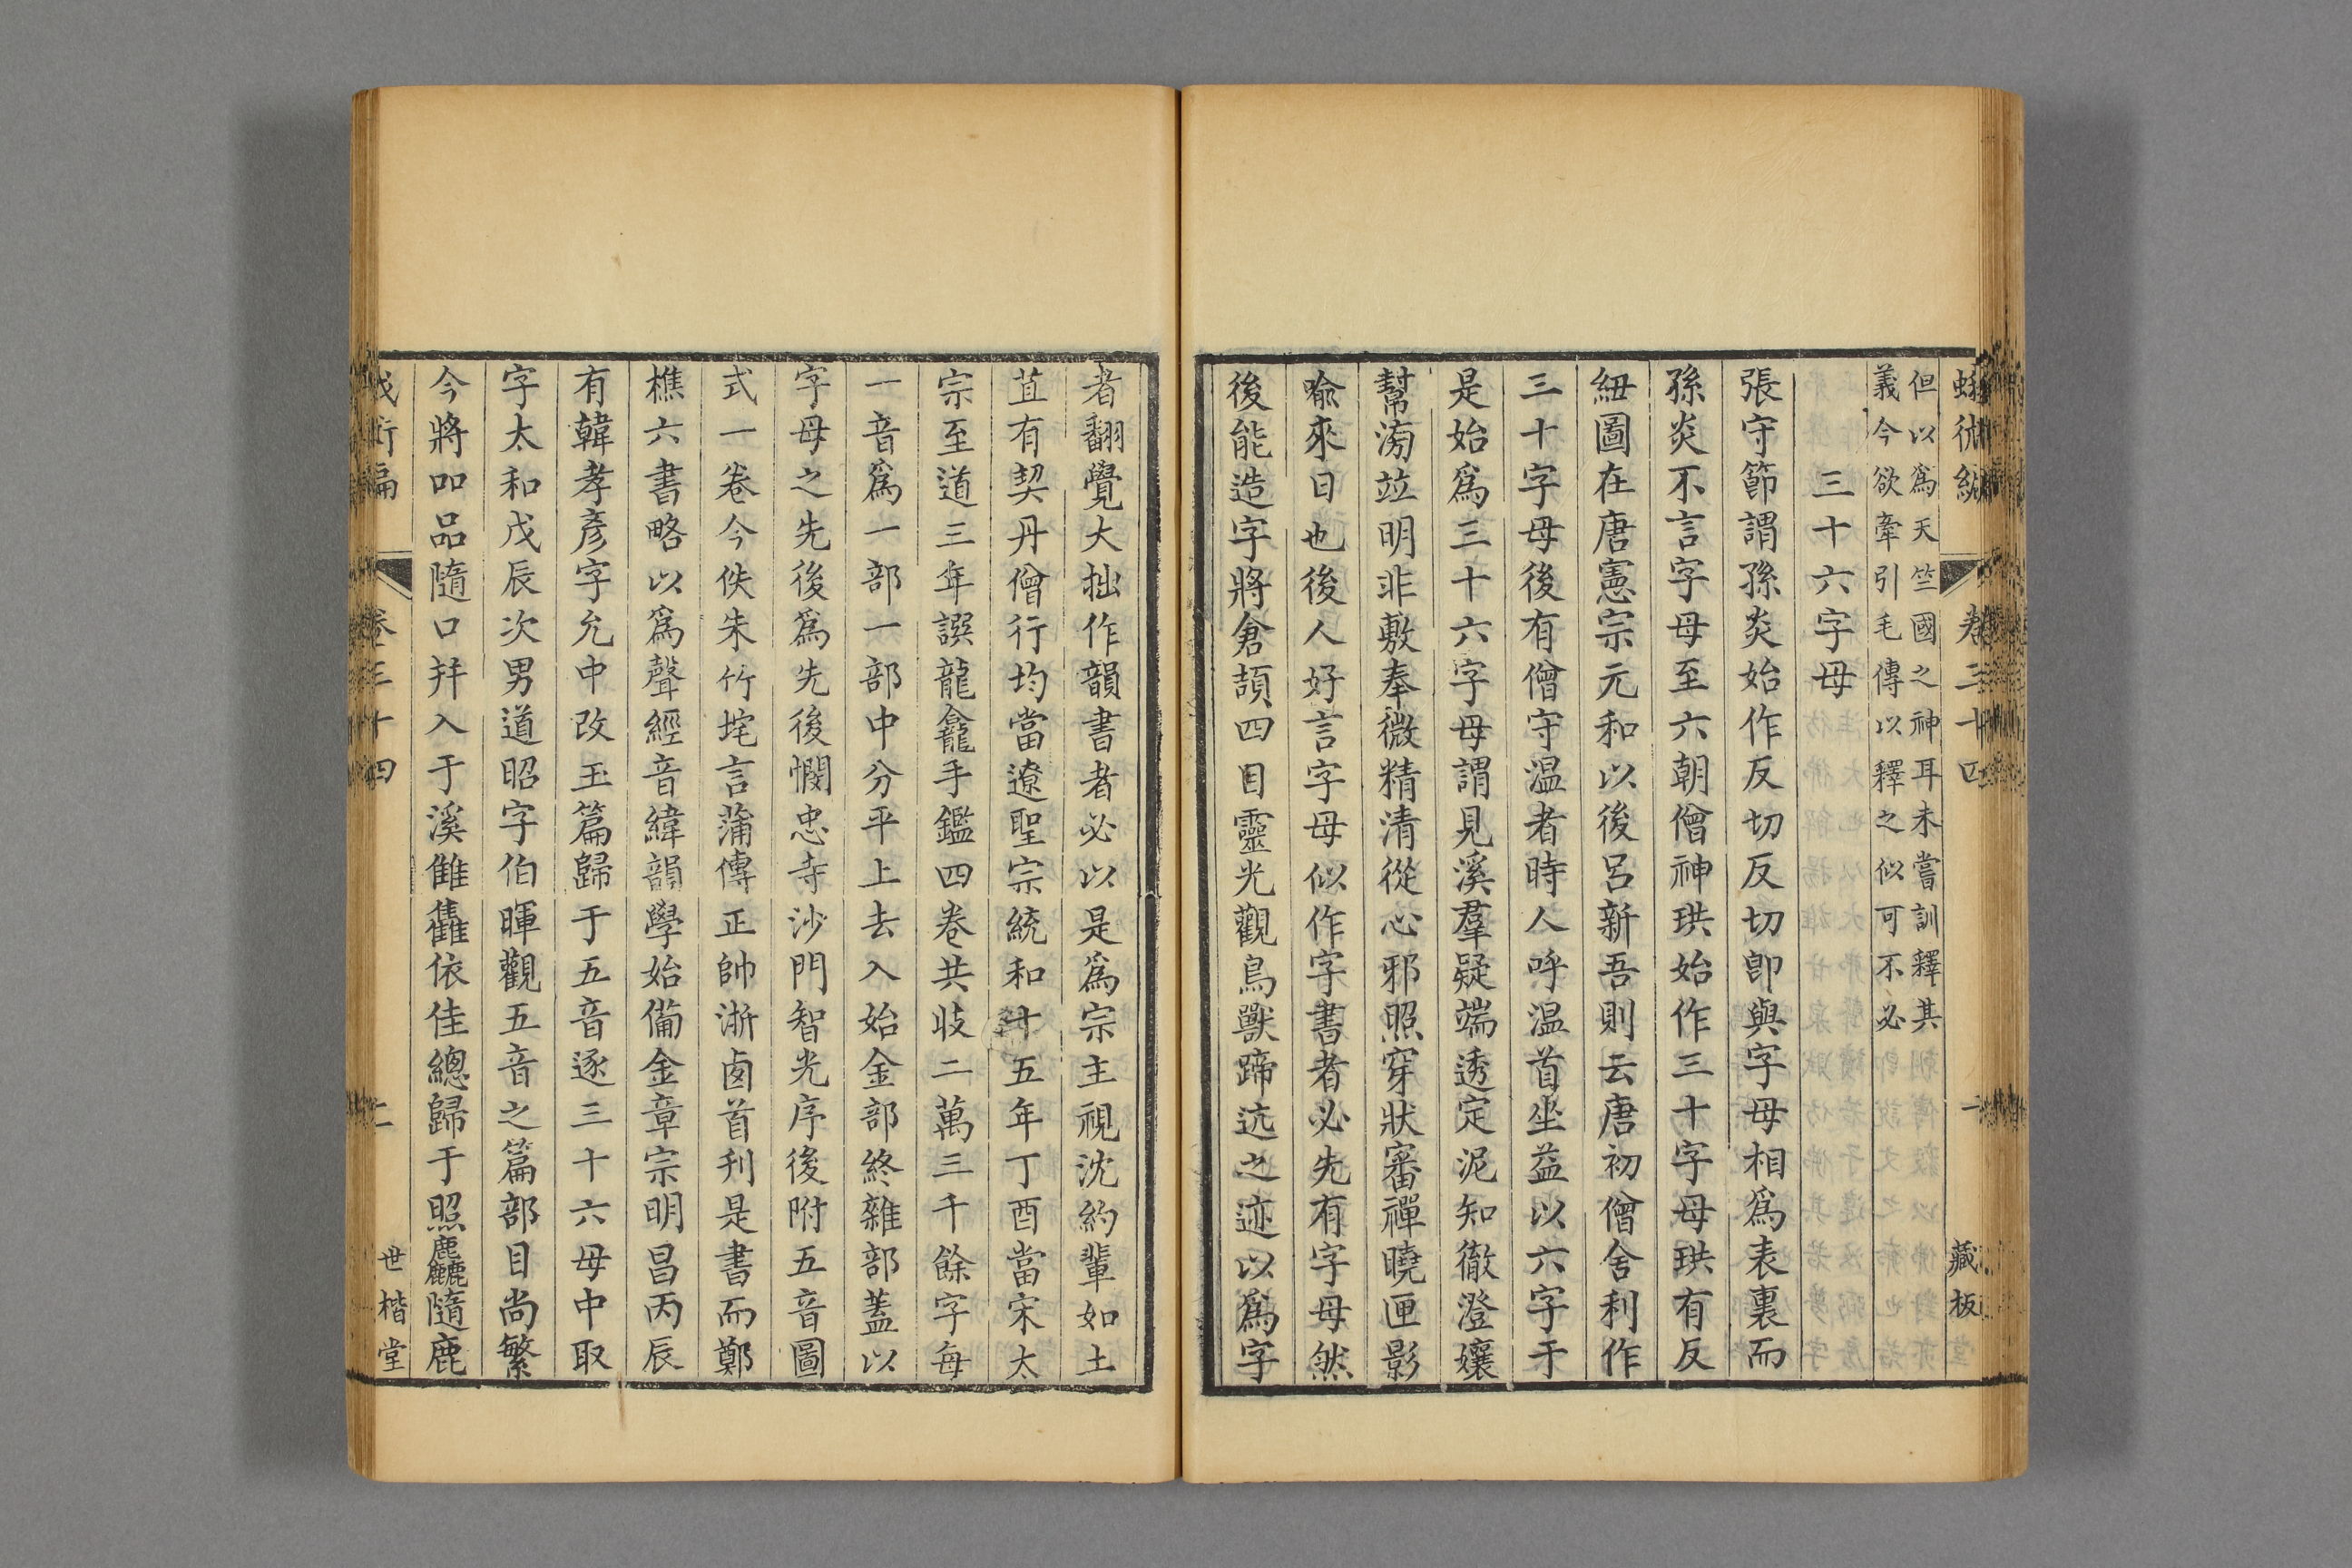 卷三十四
一
藏板
但以爲天竺國之神耳未嘗訓釋其
義今欲牽引毛傳以釋之似可不必
三十六字母
張守節謂孫炎始作反切反切卽與字母相爲表裏而
孫炎不言字母至六朝僧神珙始作三十字母珙有反
紐圖在唐憲宗元和以後呂新吾則云唐初僧舍利作
三十字母後有僧守温者時人呼温首坐益以六字于
是始爲三十六字母謂見溪羣疑端透定泥知徹澄孃
幫滂竝明非敷奉微精清從心邪照穿狀審禪曉匣影
喻來日也後人好言字母似作字書者必先有字母然
後能造字將倉頡四目靈光觀鳥獸蹄迒之迹以爲字
者翻覺大拙作韻書者必以是爲宗主視沈約輩如土
苴有契丹僧行均當遼聖宗統和十五年丁酉當宋太
宗至道三年譔龍龕手鑑四卷共收二萬三千餘字每
一音爲一部一部中分平上去入始金部終雜部蓋以
字母之先後爲先後憫忠寺沙門智光序後附五音圖
式一卷今佚朱竹垞言蒲傳正帥浙卤首刋是書而鄭
樵六書略以爲聲經音緯韻學始備金章宗明昌丙辰
有韓孝彥字允中改玉篇歸于五音逐三十六母中取
字太和戊辰次男道昭字伯暉觀五音之篇部目尚繁
今將吅品隨口幷入于溪雔雥依隹總歸于照麤隨鹿
卷三十四
二
世楷堂